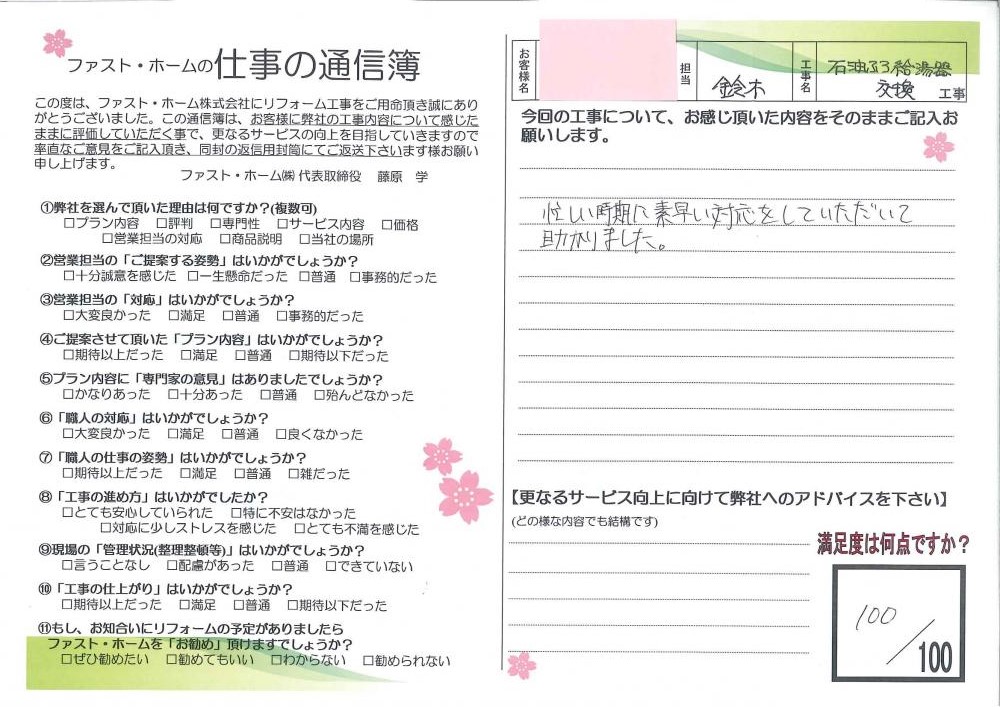 ファスト・ホームの仕事の通信簿
この度は、ファスト・ホーム株式会社にリフォーム工事をご用命頂き誠にあり
がとうございました。この通信簿は、お客様に弊社の工事内容について感じた
ままに評価していただく事で、更なるサービスの向上を目指していきますので
率直なご意見をご記入頂き、同封の返信用封筒にてご返送下さいます様お願い
申し上げます。
ファスト・ホーム㈱ 代表取締役 藤原 学
①弊社を選んで頂いた理由は何ですか？(複数可)
□プラン内容 □評判 □専門性 □サービス内容 □価格
□営業担当の対応 □商品説明 □当社の場所
②営業担当の「ご提案する姿勢」はいかがでしょうか？
□十分誠意を感じた □一生懸命だった □普通 □事務的だった
③営業担当の「対応」はいかがでしょうか？
□大変良かった □満足 □普通 □事務的だった
④ご提案させて頂いた「プラン内容」はいかがでしょうか？
□期待以上だった □満足 □普通 □期待以下だった
⑤プラン内容に「専門家の意見」はありましたでしょうか？
□かなりあった □十分あった □普通 □殆んどなかった
⑥「職人の対応」はいかがでしょうか？
□大変良かった □満足 □普通 □良くなかった
⑦「職人の仕事の姿勢」はいかがでしょうか？
□期待以上だった □満足 □普通 □雑だった
⑧「工事の進め方」はいかがでしたか？
□とても安心していられた □特に不安はなかった
□対応に少しストレスを感じた □とても不満を感じた
⑨現場の「管理状況(整理整頓等)」はいかがでしょうか？
□言うことなし □配慮があった □普通 □できていない
⑩「工事の仕上がり」はいかがでしょうか？
□期待以上だった □満足 □普通 □期待以下だった
⑪もし、お知合いにリフォームの予定がありましたら
ファスト・ホームを「お勧め」頂けますでしょうか？
□ぜひ勧めたい □勧めてもいい □わからない □勧められない
お客様名
担当
鈴木
工事名
石油ふろ給湯器
交換 工事
今回の工事について、お感じ頂いた内容をそのままご記入お
願いします。
忙しい時期に素早い対応をしていただいて
助かりました。
【更なるサービス向上に向けて弊社へのアドバイスを下さい】
(どの様な内容でも結構です)
満足度は何点ですか？
100/100